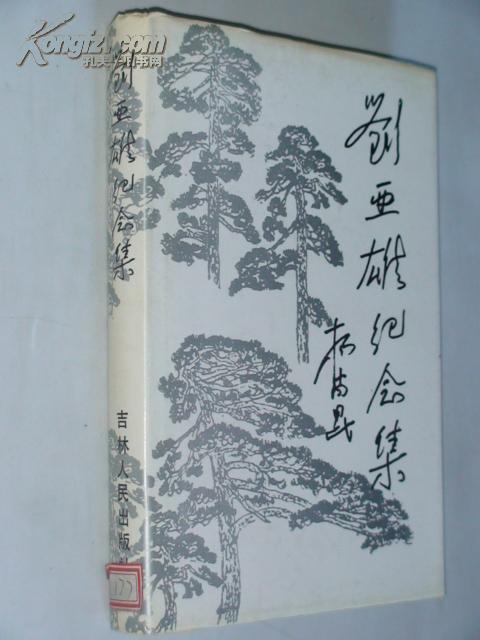 Kongfz.com
孔夫子旧书网
劉亚雄纪念集
吉林人民出版社
177
劉亚雄纪念集
杨尚昆